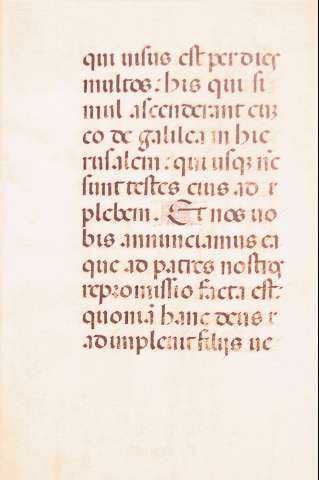 qui uisus est per dies
multos: his qui si
mul ascenderant cũ
eo de galilea in hie
rusalem: qui usqȝ nc̃
sunt testes eius ad
plebem. Et nos uo
bis annunciamus ea
que ad patres nostros
repromissio facta est:
quoniã hanc deus
adimpleuit filijs ue